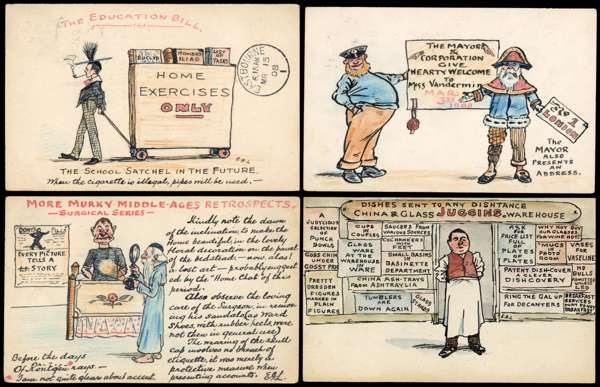 THE EDUCATION BILL.
EUCLID
HOMER'S ILIAD
LIST OF TASKS
HOME
EXERCISES
ONLY
EASTBOURNE
MR 15
08
THE SCHOOL SATCHEL IN THE FUTURE.
When the cigarette is illegal, pipes will be used.—
THE MAYOR
&
CORPORATION
GIVE
HEARTY WELCOME
TO
MISS VANDERMIN
MAR:
1908
No 1
LONDON
THE
MAYOR
ALSO
PRESENTS
AN
ADDRESS.
MORE MURKY MIDDLE-AGES RETROSPECTS,
—SURGICAL SERIES—
DON'T
EVERY PICTURE
TELLS A
STORY
Before the days
Of Röntgen rays.—
I am not quite clear about accent.
Kindly note the dawn
of the inclination to make the
home beautiful in the lovely
floral decoration on the panel
of the bedstead—now, alas!
a lost art — probably suggest-
ed by the "Home Chat" of this
period.
Also observe the loving
care of the Surgeon, in remov-
ing his sandals (as Ward
Shoes, with rubber heels, were
not then in general use)
The wearing of the skull
cap involves no breach of
etiquette, it was merely a
protective measure when
presenting accounts.
DISHES SENT TO ANY DISHTANCE
CHINA & GLASS JUGGINS. WAREHOUSE
A
JUDYCIOUS SELECTION
OF
PUNCH
BOWLS
PRETTY
DRESDEN
FIGURES
MARKED IN
PLAIN
FIGURES
CUPS
UP TO
COUPLES
GLASS
WARE
AT THE
WAREHOUSE
WARE
SAUCERS FROM
VARIOUS SOURCES
SMALL BASINS
IN
BASINETTE
DEPARTMENT
CHINA ASH-TRAYS
FROM
ASHTRAYLIA
TUMBLERS
ARE
DOWN AGAIN
ASK
FOR
PRICE LIST
FULL
OF
PLATES
OF
PLATES
MUGS
IN
PHOTO
ROOM
VASES
FOR
VASELINE
PATENT DISH-COVER
A CLEVER
DISHCOVERY
RING THE GAL UP
FOR
DECANTERS
BREAKFAST
SERVICES